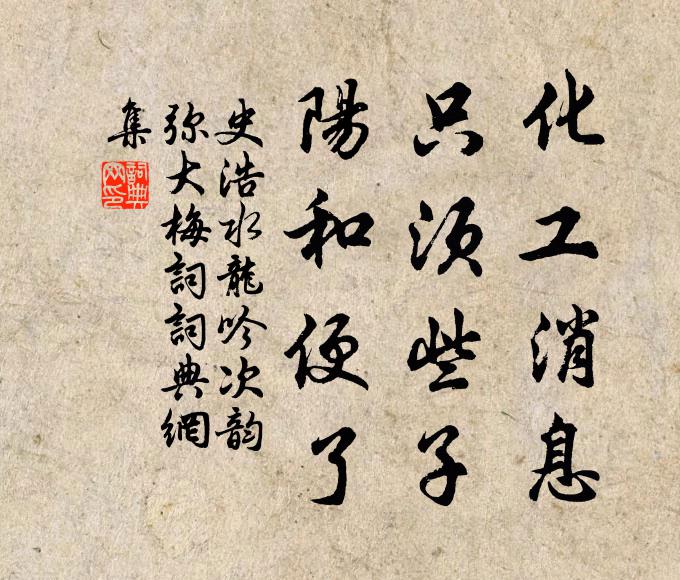 化工消息
只須些子
陽和便了
史浩水龍吟次韵
弥大梅詞詞典網
集
詞典
网印